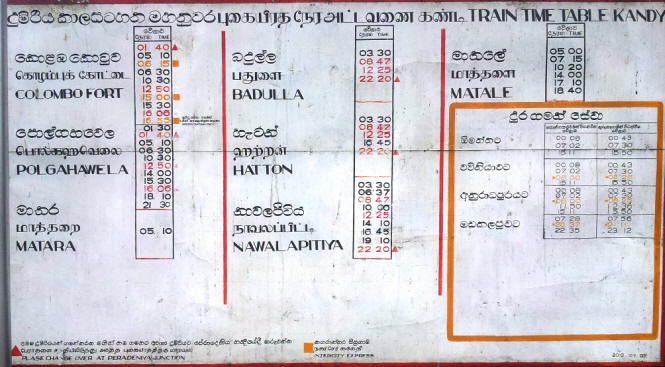 දුම්රිය කාලසටහන මහනුවර புகையிரத நேர அட்டவணை கண்டி TRAIN TIME TABLE KANDY
කොළඹ කොටුව
கொழும்புக் கோட்டை
COLOMBO FORT
01 40
05 10
06 15
06 30
10 30
12 50
15 00
15 30
16 06
16 55
පොල්ගහවෙල
பொல்கஹவெலை
POLGAHAWELA
01 30
01 40
05 10
06 30
10 30
12 50
14 00
15 30
16 06
18 10
21 30
මාතර
மாத்தறை
MATARA
05 10
බදුල්ල
பதுளை
BADULLA
03 30
08 47
12 25
22 20
හැටන්
ஹற்றன்
HATTON
03 30
08 47
12 25
16 45
22 20
නාවලපිටිය
நாவலப்பிட்டி
NAWALAPITIYA
03 30
06 37
08 47
10 06
12 25
14 10
16 45
19 10
22 20
මාතලේ
மாத்தளை
MATALE
05 00
07 15
10 20
14 00
17 10
18 40
දුර ගමන් සේවා
ඕමන්තට
00 08 00 43
07 02 07 30
වව්නියාවට
00 08 00 43
07 02 07 30
අනුරාධපුරයට
00 08 00 43
මඩකලපුවට
07 28 07 56
22 35 23 12
PLASE CHANGE OVER AT PERADENIYA JUNCTION
නගරාන්තර සීඝ්‍රගාමී
INTERCITY EXPRESS